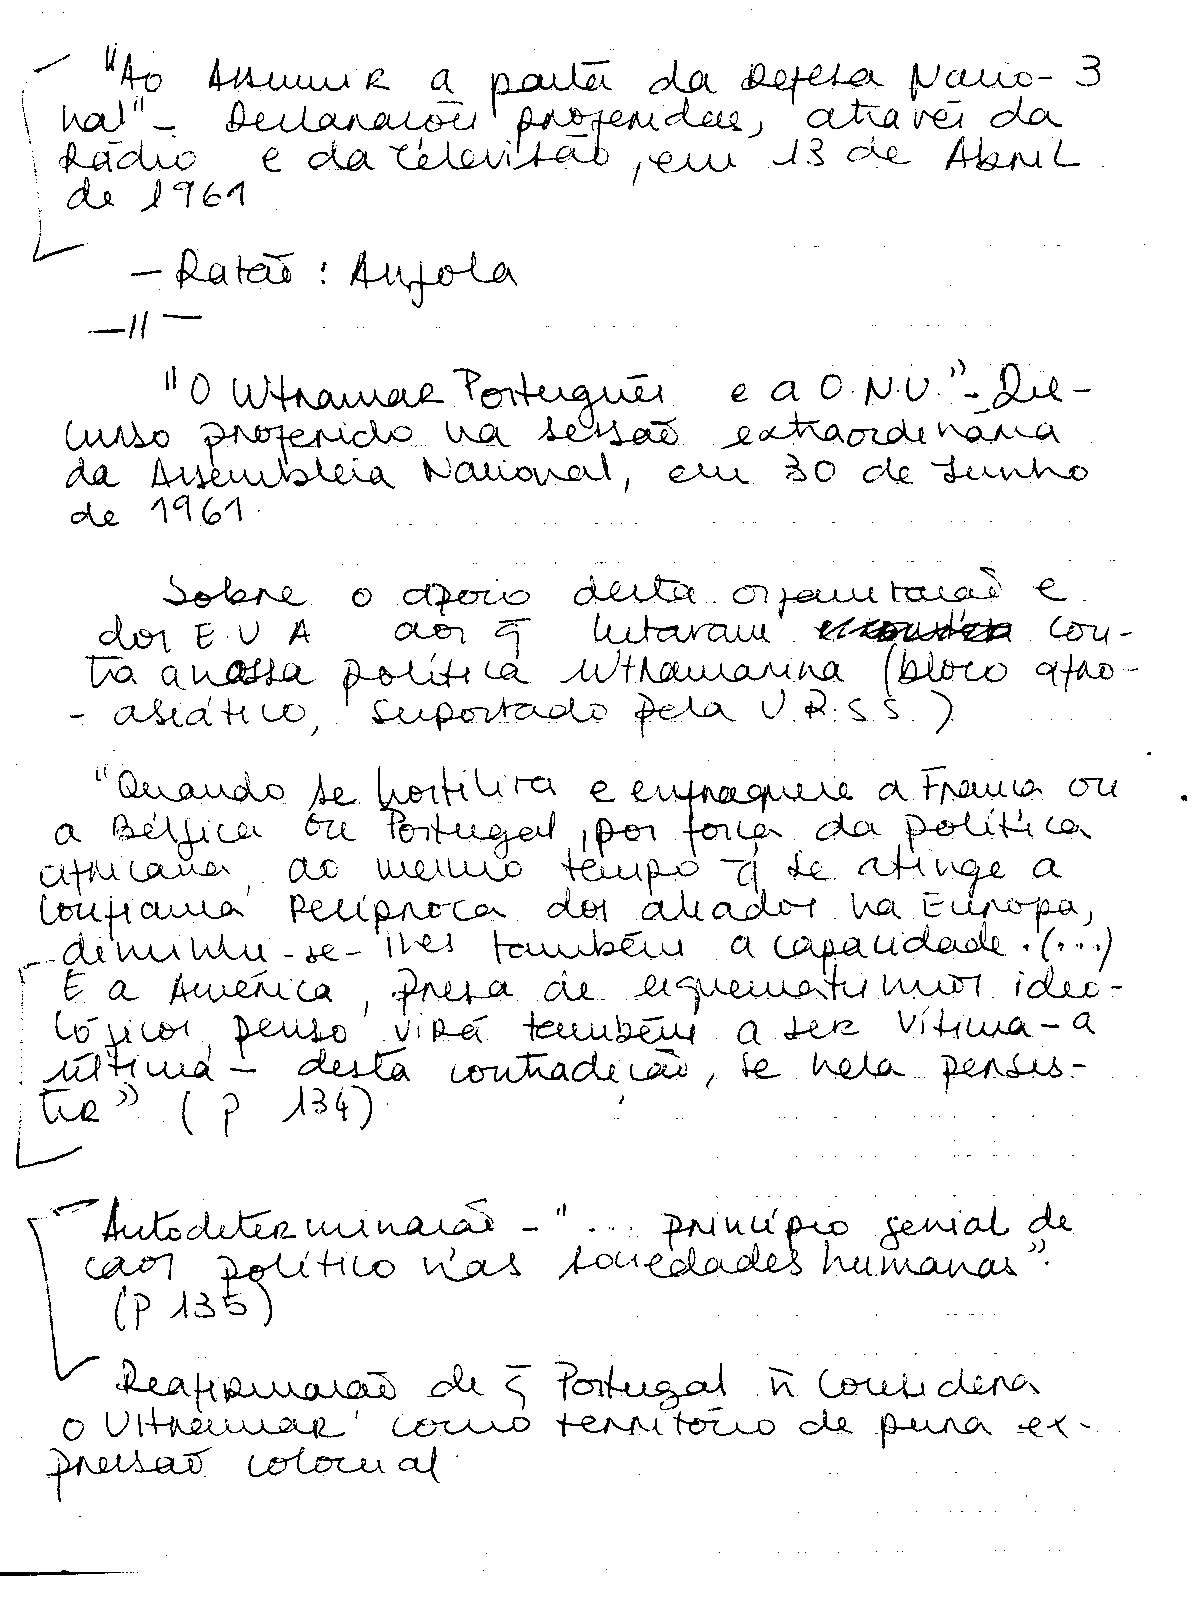 "Ao Assumir a pasta da Defesa Nacio- 3
nal" - Declarações proferidas, através da
Rádio e da Televisão, em 13 de Abril
de 1961
- Razão : Angola
—11—
"O Ultramar Português e a O.N.U." - Dis-
curso proferido na sessão extraordinária
da Assembleia Nacional, em 30 de Junho
de 1961.
Sobre o apoio desta organização e
dos E U A aos q̄ lutavam con-
tra a nossa política ultramarina (bloco afro-
- asiático, suportado pela U.R.S.S.)
"Quando se hostiliza e enfraquece a França ou
a Bélgica ou Portugal, por força da política
africana, ao mesmo tempo q̄ se atinge a
confiança recíproca dos aliados na Europa,
diminui-se-lhes também a capacidade. (...)
E a América, presa de esquematismos ideo-
lógicos, penso virá também a ser vítima - a
última - desta contradição, se nela persis-
tir" (p 134)
Autodeterminação - "... princípio genial de
caos político nas sociedades humanas".
(p 135)
Reafirmação de q̄ Portugal ñ considera
o Ultramar como território de pura ex-
pressão colonial.